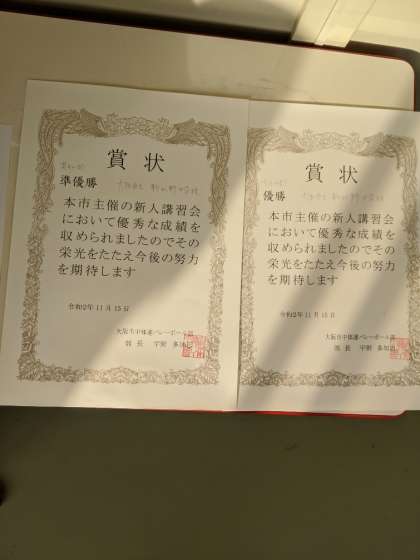 賞状
準優勝
本市主催の新人講習会
において優秀な成績を
収められましたのでその
栄光をたたえ今後の努力
を期待します
令和2年11月15日
大阪市中体連バレーボール部
部長
賞状
優勝
本市主催の新人講習会
において優秀な成績を
収められましたのでその
栄光をたたえ今後の努力
を期待します
令和2年11月15日
大阪市中体連バレーボール部
部長